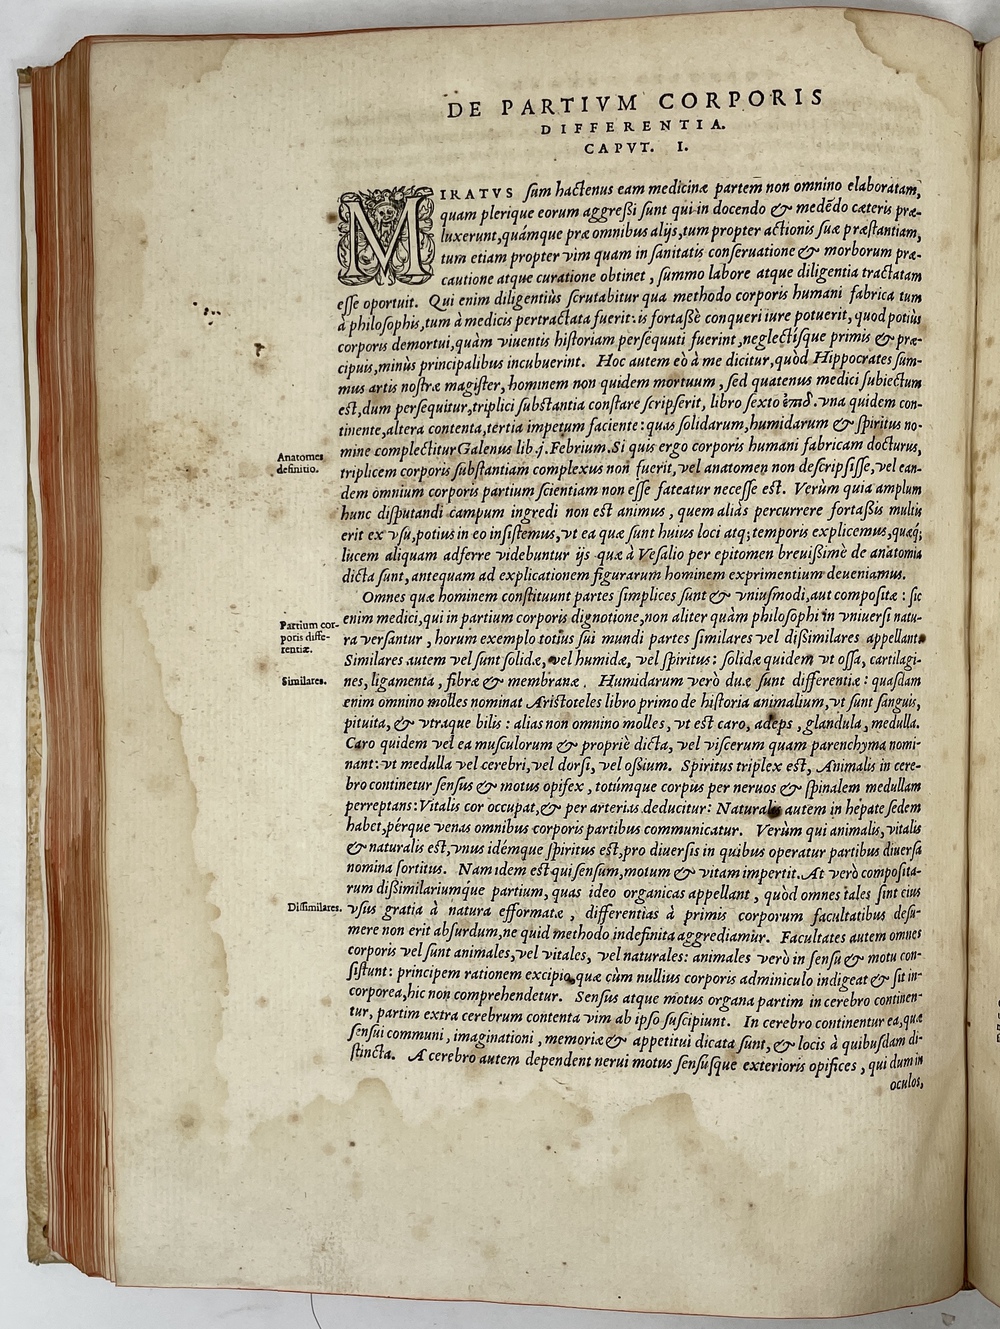 DE PARTIVM CORPORIS
DIFFERENTIA.
CAPVT. I.
MIRATVS sum hactenus eam medicinæ partem non omnino elaboratam,
quam plerique eorum aggreßi sunt qui in docendo & medēdo cæteris præ-
luxerunt, quámque præ omnibus alijs, tum propter actionis suæ præstantiam,
tum etiam propter vim quam in sanitatis conseruatione & morborum præ-
cautione atque curatione obtinet, summo labore atque diligentia tractatam
esse oportuit. Qui enim diligentiùs scrutabitur qua methodo corporis humani fabrica tum
à philosophis, tum à medicis pertractata fuerit: is fortaßè conqueri iure potuerit, quod potiùs
corporis demortui, quàm viuentis historiam persequuti fuerint, neglectísque primis & præ-
cipuis, minùs principalibus incubuerint. Hoc autem eò à me dicitur, quòd Hippocrates sum-
mus artis nostræ magister, hominem non quidem mortuum, sed quatenus medici subiectum
est, dum persequitur, triplici substantia constare scripserit, libro sexto ἐπιδ. vna quidem con-
tinente, altera contenta, tertia impetum faciente: quas solidarum, humidarum & spiritus no-
mine complectitur Galenus lib. j. Febrium. Si quis ergo corporis humani fabricam docturus,
Anatomes
definitio.
triplicem corporis substantiam complexus non fuerit, vel anatomen non descripsisse, vel ean-
dem omnium corporis partium scientiam non esse fateatur necesse est. Verùm quia amplum
hunc disputandi campum ingredi non est animus, quem aliàs percurrere fortaßis multis
erit ex vsu, potius in eo insistemus, vt ea quæ sunt huius loci atq; temporis explicemus, quæq;
lucem aliquam adferre videbuntur ijs quæ à Vesalio per epitomen breuißimè de anatomia
dicta sunt, antequam ad explicationem figurarum hominem exprimentium deueniamus.
Omnes quæ hominem constituunt partes simplices sunt & vniusmodi, aut compositæ: sic
Partium cor-
poris diffe-
rentiæ.
enim medici, qui in partium corporis dignotione, non aliter quàm philosophi in vniuersi natu-
ra versantur, horum exemplo totius sui mundi partes similares vel dißimilares appellant.
Similares autem vel sunt solidæ, vel humidæ, vel spiritus: solidæ quidem vt ossa, cartilagi-
Similares.
nes, ligamenta, fibræ & membranæ. Humidarum verò duæ sunt differentiæ: quasdam
enim omnino molles nominat Aristoteles libro primo de historia animalium, vt sunt sanguis,
pituita, & vtraque bilis: alias non omnino molles, vt est caro, adeps, glandula, medulla.
Caro quidem vel ea musculorum & propriè dicta, vel viscerum quam parenchyma nomi-
nant: vt medulla vel cerebri, vel dorsi, vel ossium. Spiritus triplex est, Animalis in cere-
bro continetur sensus & motus opifex, totúmque corpus per neruos & spinalem medullam
perreptans: Vitalis cor occupat, & per arterias deducitur: Naturalis autem in hepate sedem
habet, pérque venas omnibus corporis partibus communicatur. Verùm qui animalis, vitalis
& naturalis est, vnus idémque spiritus est, pro diuersis in quibus operatur partibus diuersa
nomina sortitus. Nam idem est qui sensum, motum & vitam impertit. At verò composita-
rum dißimilariumque partium, quas ideo organicas appellant, quòd omnes tales sint eius
Dissimilares.
vsus gratia à natura efformatæ, differentias à primis corporum facultatibus desu-
mere non erit absurdum, ne quid methodo indefinita aggrediamur. Facultates autem omnes
corporis vel sunt animales, vel vitales, vel naturales: animales verò in sensu & motu con-
sistunt: principem rationem excipio, quæ cùm nullius corporis adminiculo indigeat & sit in-
corporea, hic non comprehendetur. Sensus atque motus organa partim in cerebro continen-
tur, partim extra cerebrum contenta vim ab ipso suscipiunt. In cerebro continentur ea, quæ
sensui communi, imaginationi, memoriæ & appetitui dicata sunt, & locis à quibusdam di-
stincta. A cerebro autem dependent nerui motus sensúsque exterioris opifices, qui dum in
oculos,